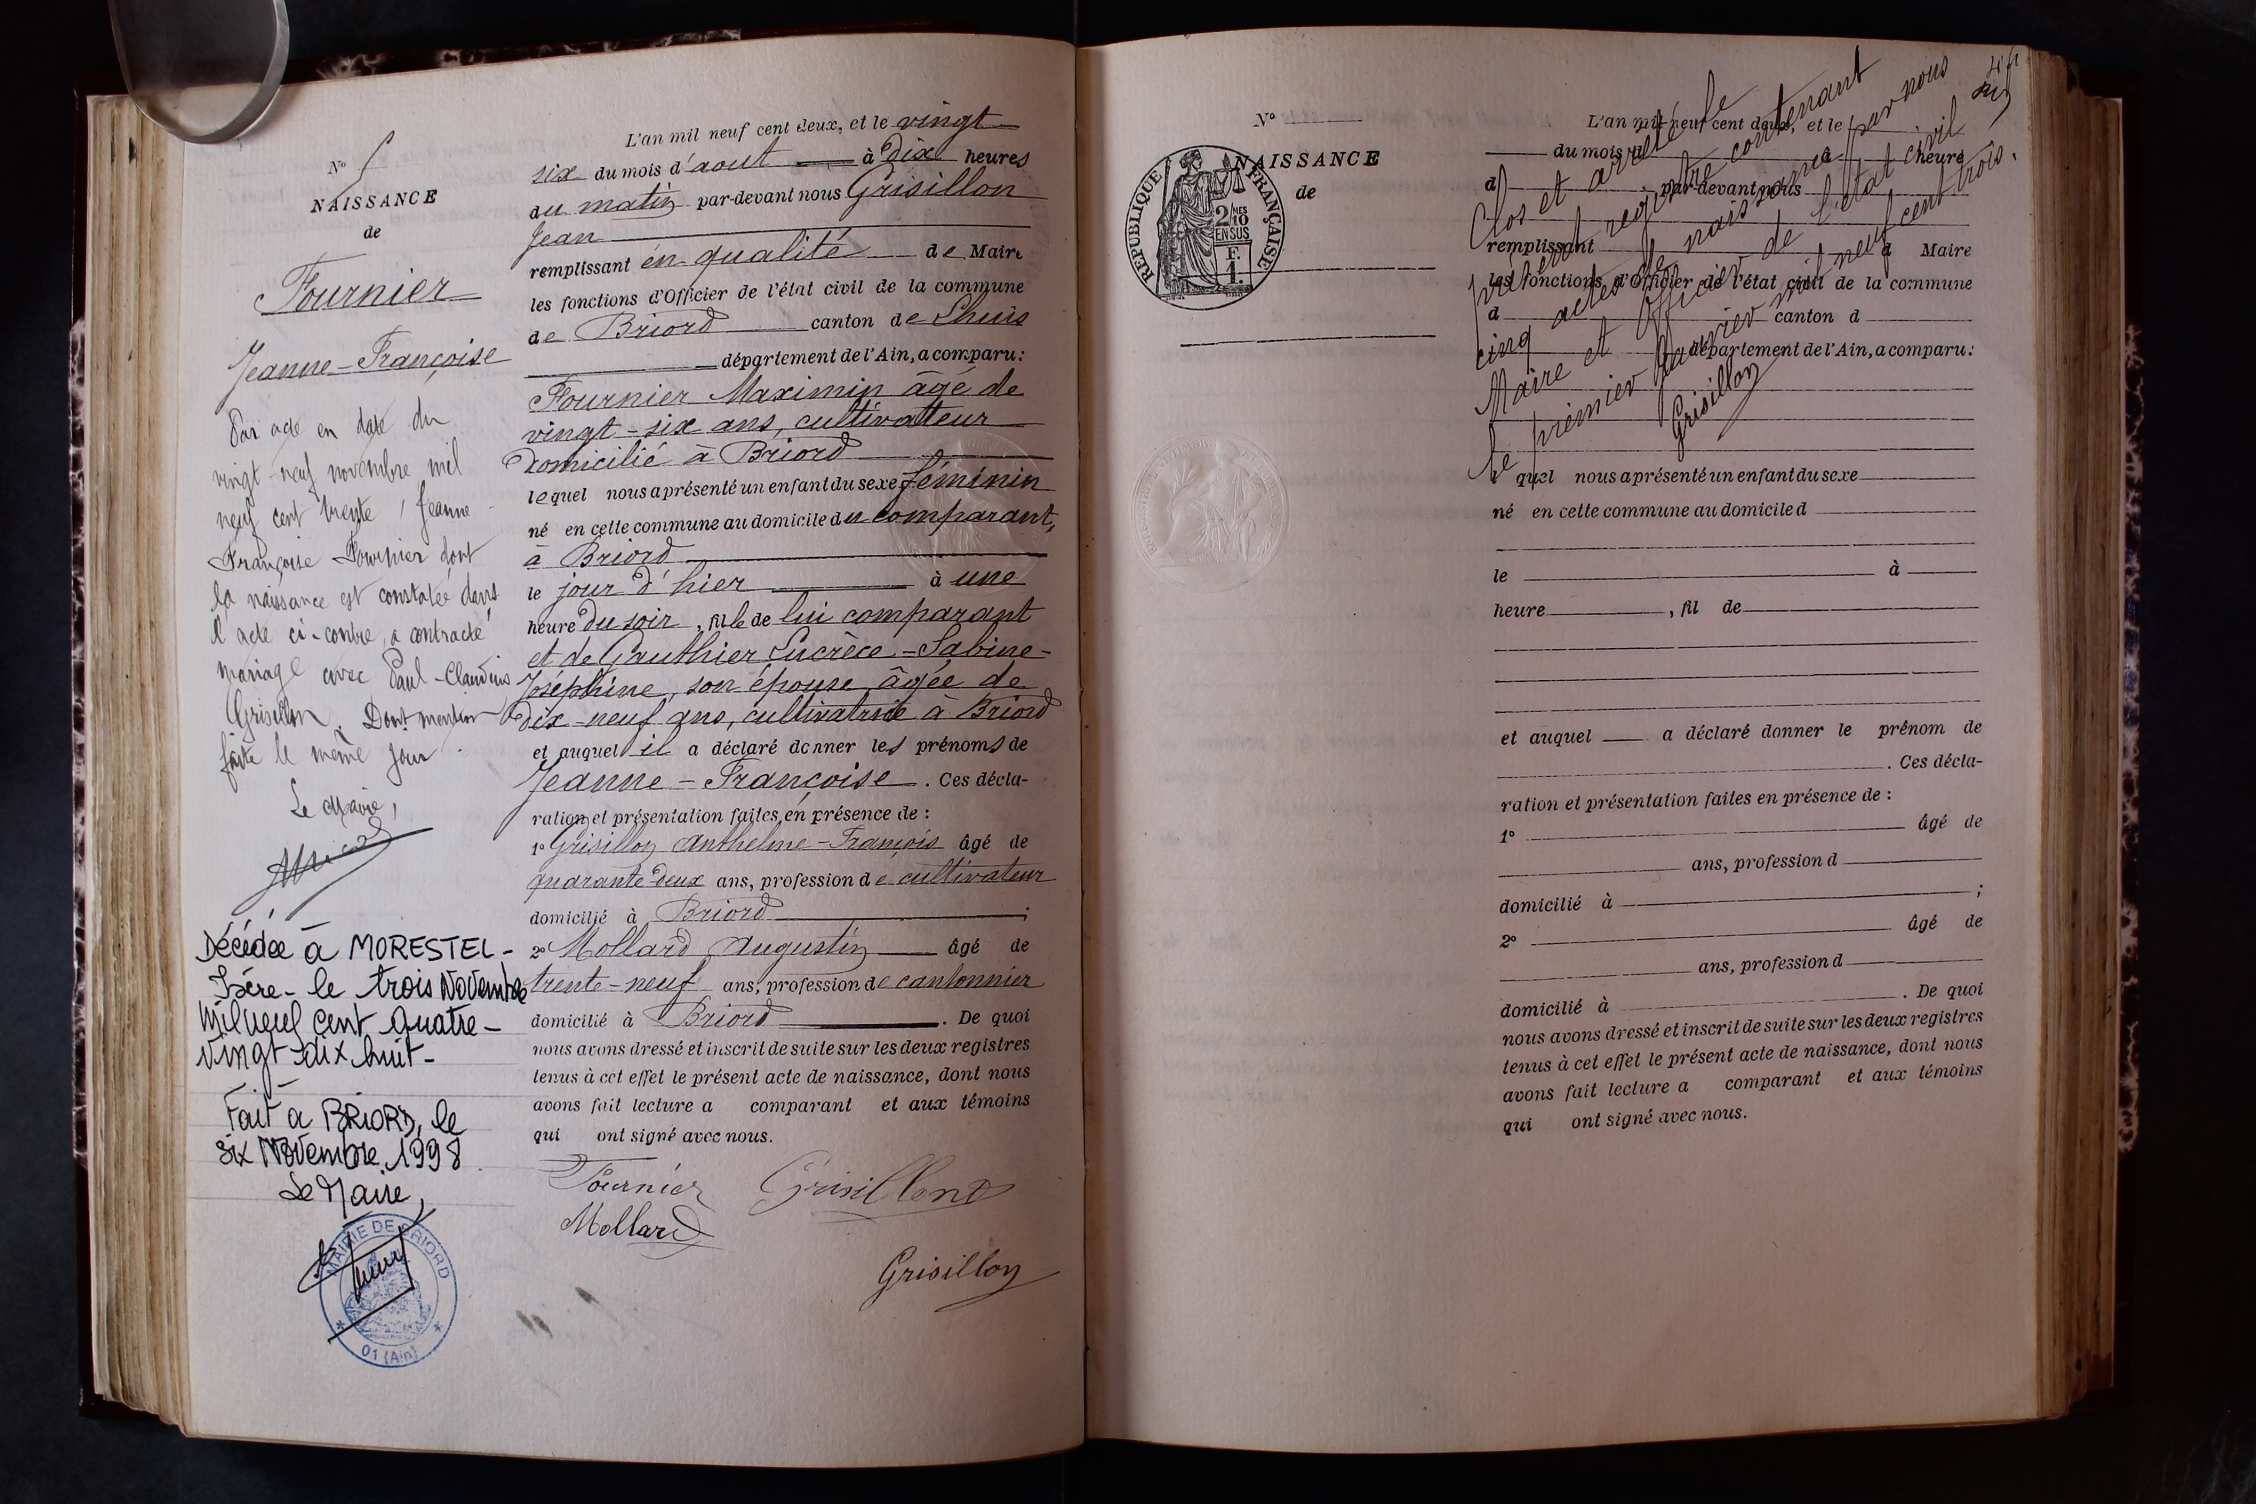 N° 5
NAISSANCE
de
Fournier
Jeanne-Françoise
Par acte en date du
vingt-neuf novembre mil
neuf cent trente, Jeanne
Françoise Fournier dont
la naissance est constatée dans
l'acte ci-contre, a contracté
mariage avec Paul-Claudius
Grisillon. Dont mention
faite le même jour.
Le Maire,
Décédée à MORESTEL-
Isère- le trois Novembre
Mil neuf cent quatre-
vingt dix huit-
Fait à BRIORD, le
six Novembre 1998
Le Maire,
MAIRIE DE BRIORD
01 (Ain)
L'an mil neuf cent deux, et le vingt
six du mois d'aout à dix heures
du matin par-devant nous Grisillon
Jean
remplissant en qualité de Maire
les fonctions d'Officier de l'état civil de la commune
de Briord canton de Lhuis
département de l'Ain, a comparu:
Fournier Maximin âgé de
vingt-six ans, cultivateur
domicilié à Briord
lequel nous a présenté un enfant du sexe féminin
né en cette commune au domicile du comparant,
à Briord
le jour d'hier à une
heure du soir, fille de lui comparant
et de Gauthier Lucrèce-Sabine-
Joséphine, son épouse âgée de
dix-neuf ans, cultivatrice à Briord
et auquel il a déclaré donner les prénoms de
Jeanne-Françoise. Ces décla-
ration et présentation faites en présence de :
1° Grisillon Anthelme-François âgé de
quarante deux ans, profession de cultivateur
domicilié à Briord ;
2° Mollard Augustin âgé de
trente-neuf ans, profession de cantonnier
domicilié à Briord. De quoi
nous avons dressé et inscrit de suite sur les deux registres
tenus à cet effet le présent acte de naissance, dont nous
avons fait lecture a comparant et aux témoins
qui ont signé avec nous.
Fournier Grisillon
Mollard
Grisillon
N°
NAISSANCE
de
RÉPUBLIQUE FRANÇAISE
2/10 MES
EN SUS
1 F.
L'an mil neuf cent deux, et le
du mois d à heure
d par-devant nous
remplissant d Maire
les fonctions d'Officier de l'état civil de la commune
d canton d
département de l'Ain, a comparu:
Clos et arrêté le
présent registre contenant
cinq actes de naissance par nous
Maire et Officier de l'état civil
le premier Janvier mil neuf cent trois.
Grisillon
le quel nous a présenté un enfant du sexe
né en cette commune au domicile d
le à
heure , fil de
et auquel a déclaré donner le prénom de
. Ces décla-
ration et présentation faites en présence de :
1° âgé de
ans, profession d
domicilié à ;
2° âgé de
ans, profession d
domicilié à . De quoi
nous avons dressé et inscrit de suite sur les deux registres
tenus à cet effet le présent acte de naissance, dont nous
avons fait lecture a comparant et aux témoins
qui ont signé avec nous.